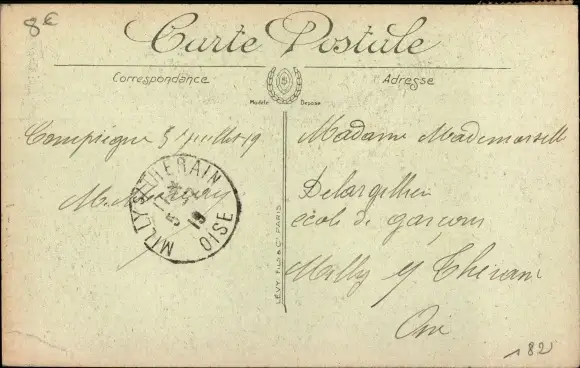 8€
Carte Postale
Correspondance
Adresse
Modèle Déposé
Compiègne 5 juillet 19
Madame Mademoiselle
MILLY-S-THERAIN
OISE
19
école de garçons
Milly s/ Thérain
Oise
LÉVY FILS & Cie PARIS
182